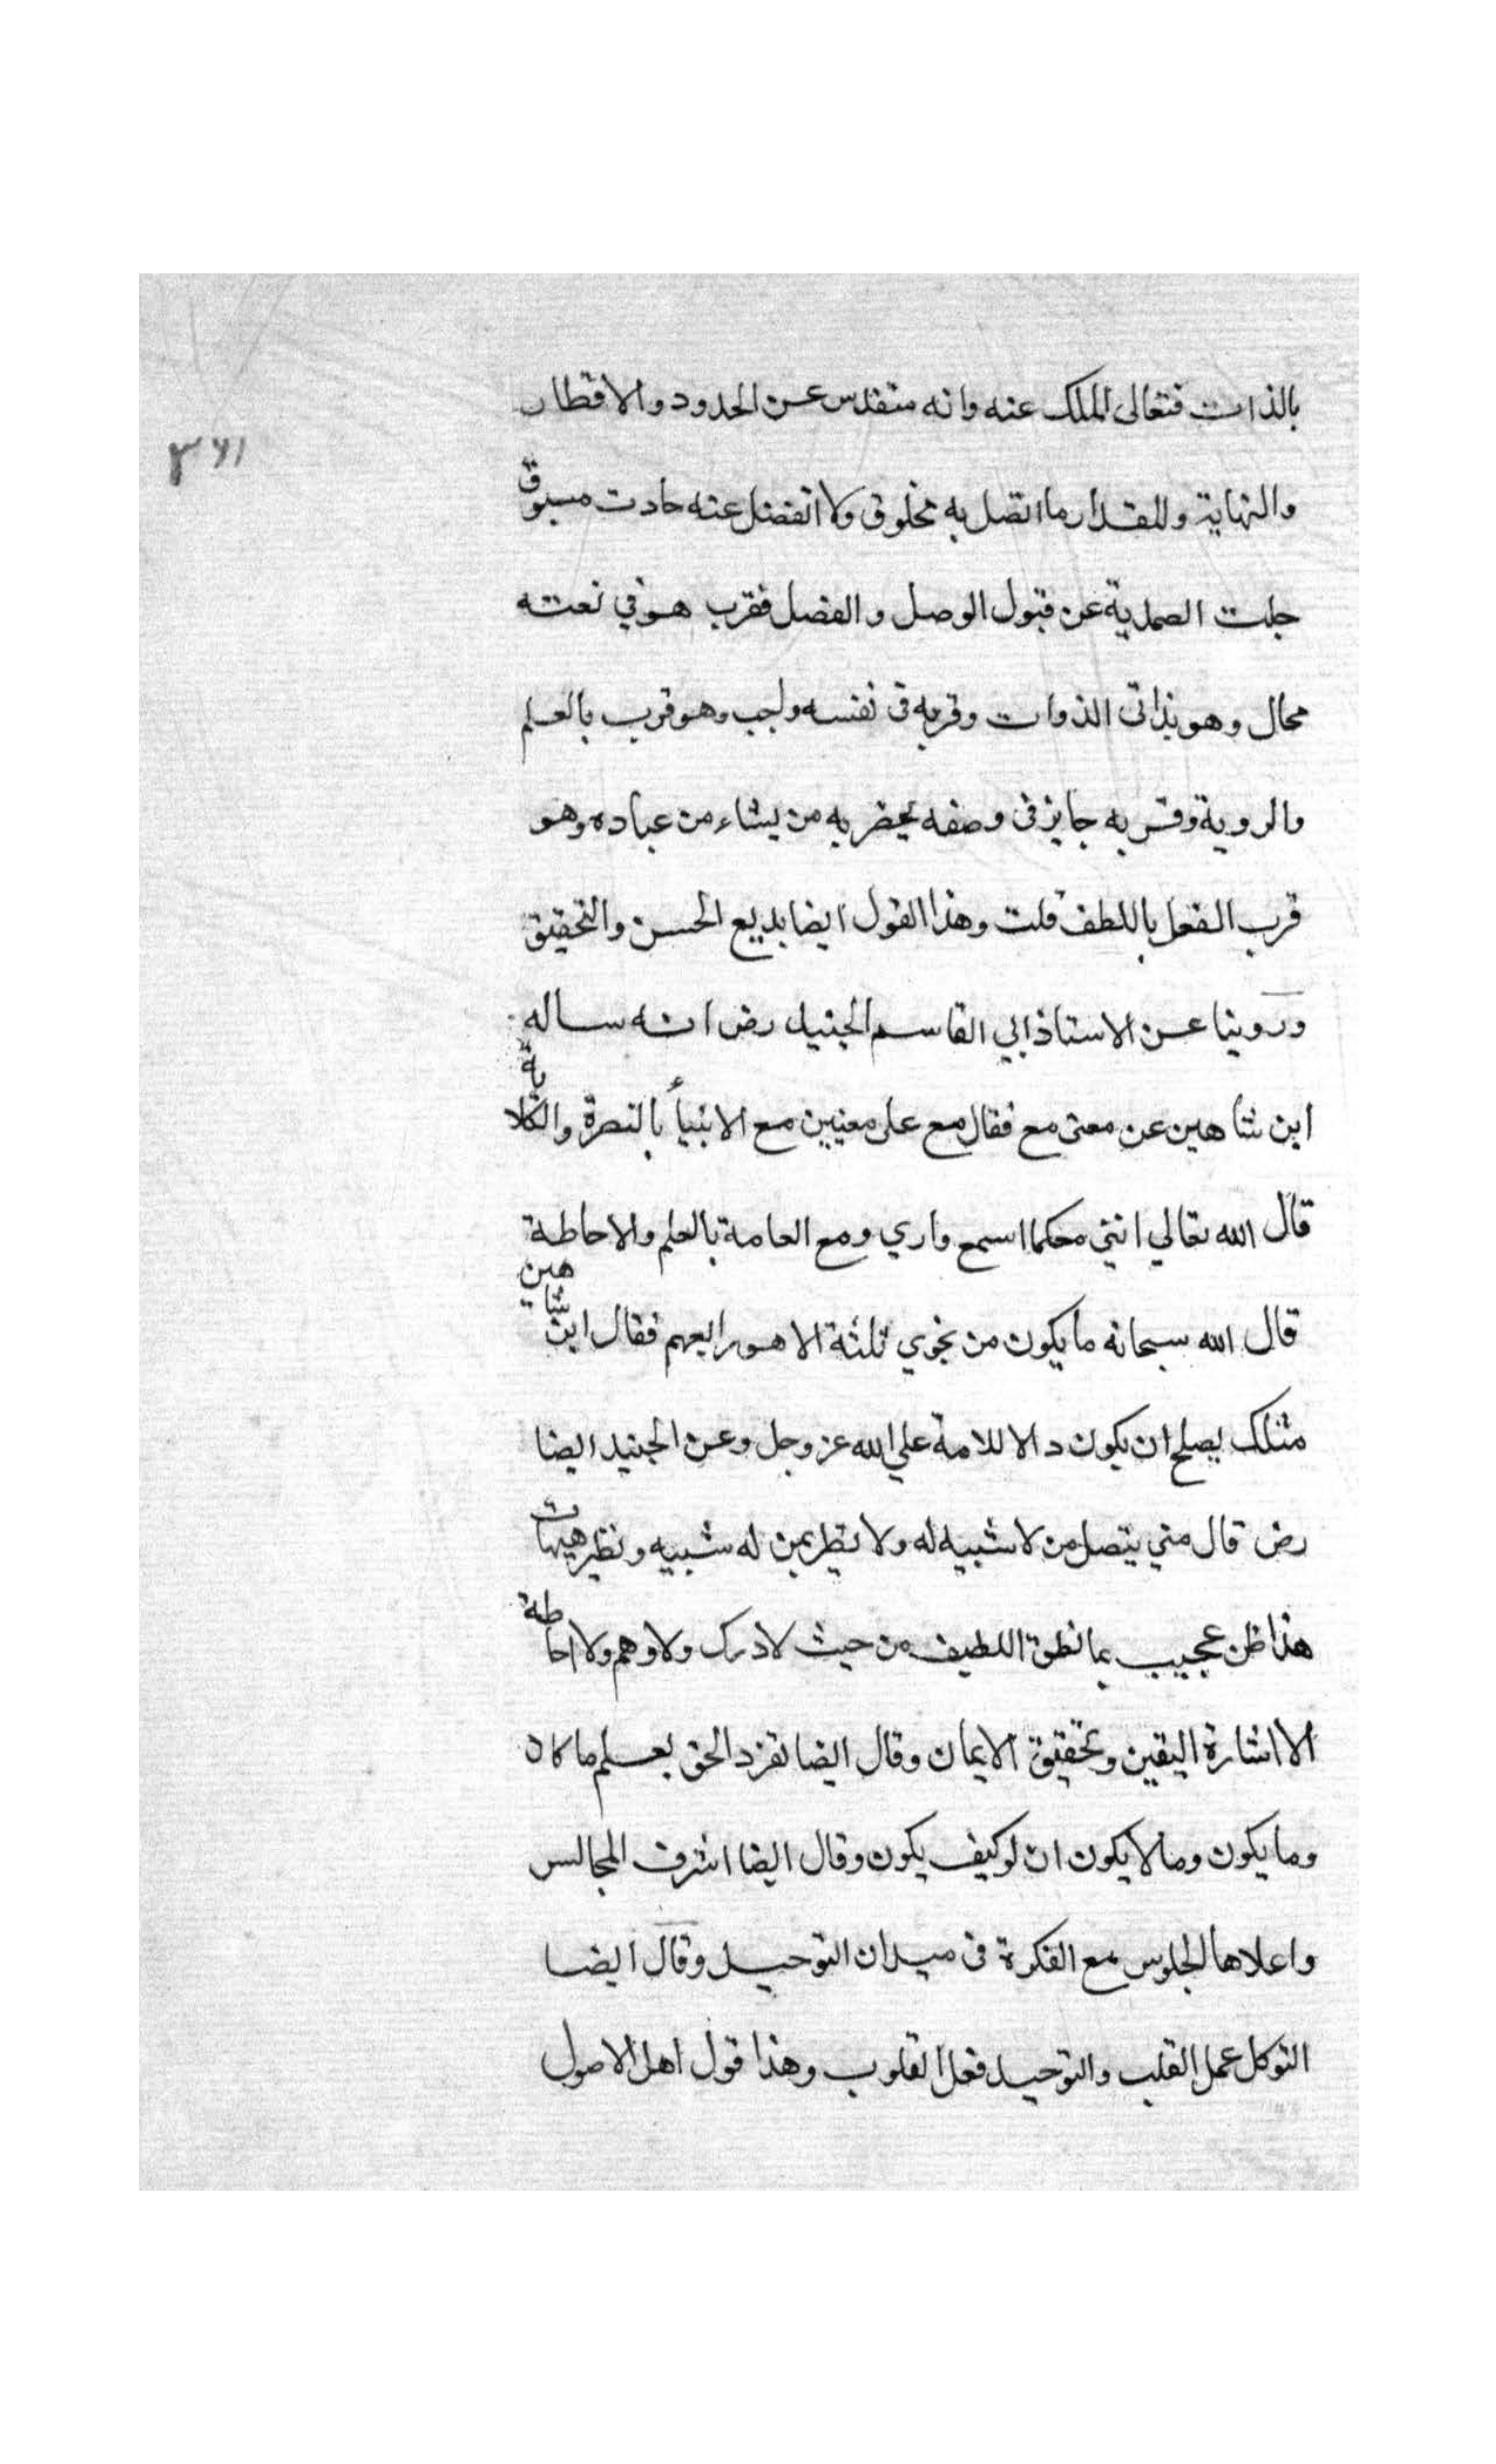 بالذات فتعالى الملك عنه وانه متقدس عن الحدود والاقطار
٣٦١
والنهاية والمقدار ما اتصل به مخلوق ولا انفصل عنه حادث مسبوق
جلت الصمدية عن قبول الوصل والفصل فقرب هو في نعته
محال وهو تداني الذوات وقربه في نفسه واجب وهو قرب بالعلم
والروية وقربه جايز في وصفه يخص به من يشاء من عباده وهو
قرب الفعل باللطف قلت وهذا القول ايضا بديع الحسن والتحقيق
وروينا عن الاستاذ ابي القاسم الجنيد رض انه ساله
ابن شاهين عن معنى مع فقال مع على معنيين مع الانبيأ بالنصرة والكلاية
قال الله تعالي انني معكما اسمع واري ومع العامة بالعلم والاحاطة
قال الله سبحانه ما يكون من نجوي ثلثة الا هو رابعهم فقال ابن شاهين
مثلك يصلح ان يكون دالا للامة علي الله عز وجل وعن الجنيد ايضا
رض قال متي يتصل من لا شبيه له ولا نظير بمن له شبيه ونظير هيهات
هذا ظن عجيب بما نطق اللطيف من حيث لا درك ولا وهم ولا احاطة
الا اشارة اليقين وتحقيق الايمان وقال ايضا تفرد الحق بعلم ما كان
وما يكون وما لا يكون ان لو كيف يكون وقال ايضا اشرف المجالس
واعلاها الجلوس مع الفكرة في ميدان التوحيد وقال ايضا
التوكل عمل القلب والتوحيد فعل القلوب وهذا قول اهل الاصول